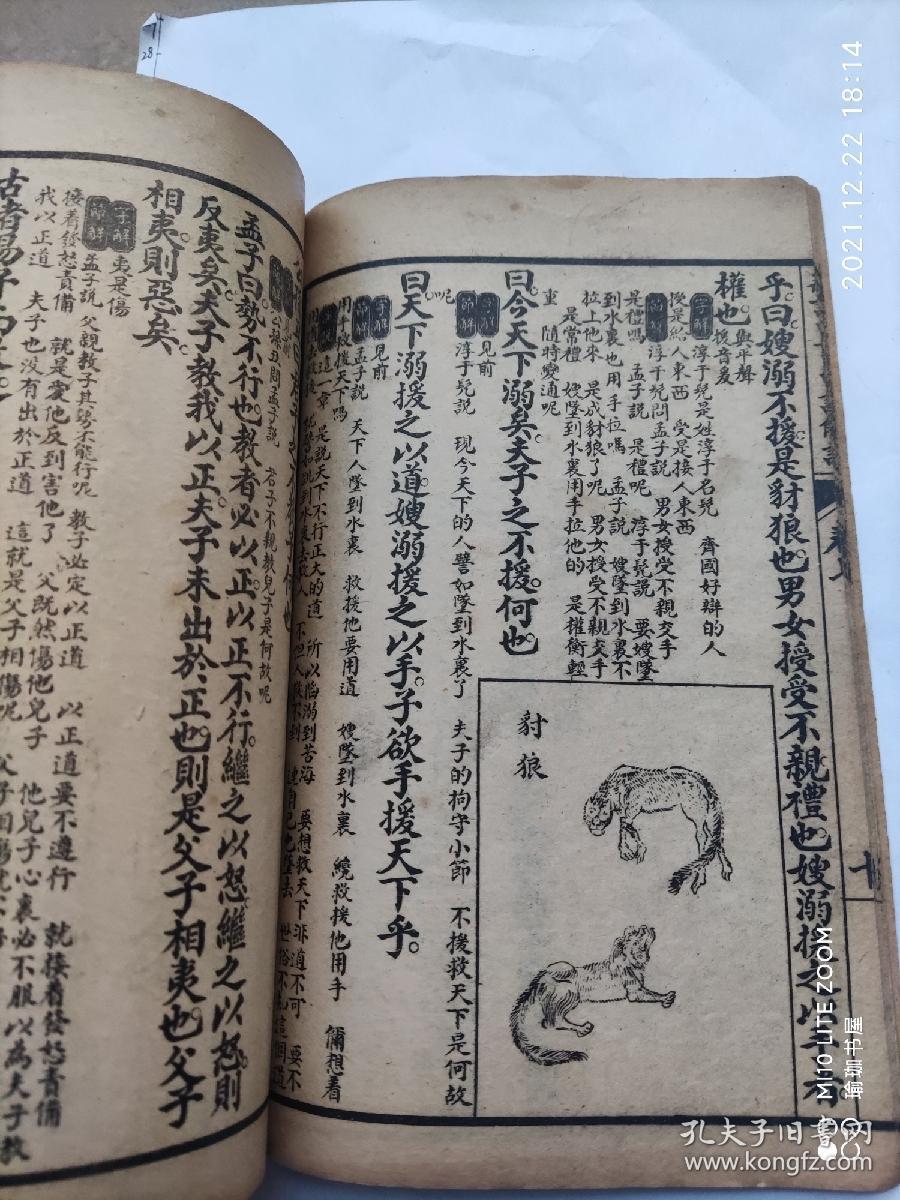 乎。曰。嫂溺不援。是豺狼也。男女授受不親。禮也。嫂溺援之以手者
權也。
與平聲
援音爰
字解 淳于髡是姓淳于名髡 齊國好辯的人
授是給人東西 受是接人東西
節解 淳于髡問孟子說 男女授受不親交手
是禮嗎 孟子說 是禮呢 淳于髡說 要嫂墜
到水裏也用手拉嗎 孟子說 嫂墜到水裏不
拉上他來 是成豺狼了呢 男女授受不親交手
是常禮 嫂墜到水裏用手拉他的 是權衡輕
重 隨時變通呢
豺狼
曰。今天下溺矣。夫子之不援。何也。
字解 見前
節解 淳于髡說 現今天下的人譬如墜到水裏了 夫子的拘守小節 不援救天下是何故
呢
曰。天下溺。援之以道。嫂溺。援之以手。子欲手援天下乎。
字解 見前
節解 孟子說 天下人墜到水裏 救援他要用道 嫂墜到水裏 纔救援他用手 你想着
用手救援天下嗎
這一章 是說天下不行正大的道 所以陷溺到苦海 要想救天下非道不可 要不
公孫丑問孟子說 君子不親教兒子是何故呢
孟子曰。勢不行也。教者必以正。以正不行。繼之以怒。繼之以怒。則
反夷矣。夫子教我以正。夫子未出於正也。則是父子相夷也。父子
相夷。則惡矣。
字解 夷是傷
節解 孟子說 父親教子其勢不能行呢 教子必定以正道 以正道要不遵行 就接着發怒責備
接着發怒責備 就是愛他反到害他了 父既然傷他兒子 他兒子心裏必不服以為夫子教
我以正道 夫子也沒有出於正道 這就是父子相傷呢
古者易子而教之。
2021.12.22 18:14
MI10 LITE ZOOM
瑜珈书屋
孔夫子旧書网
www.kongfz.com
28